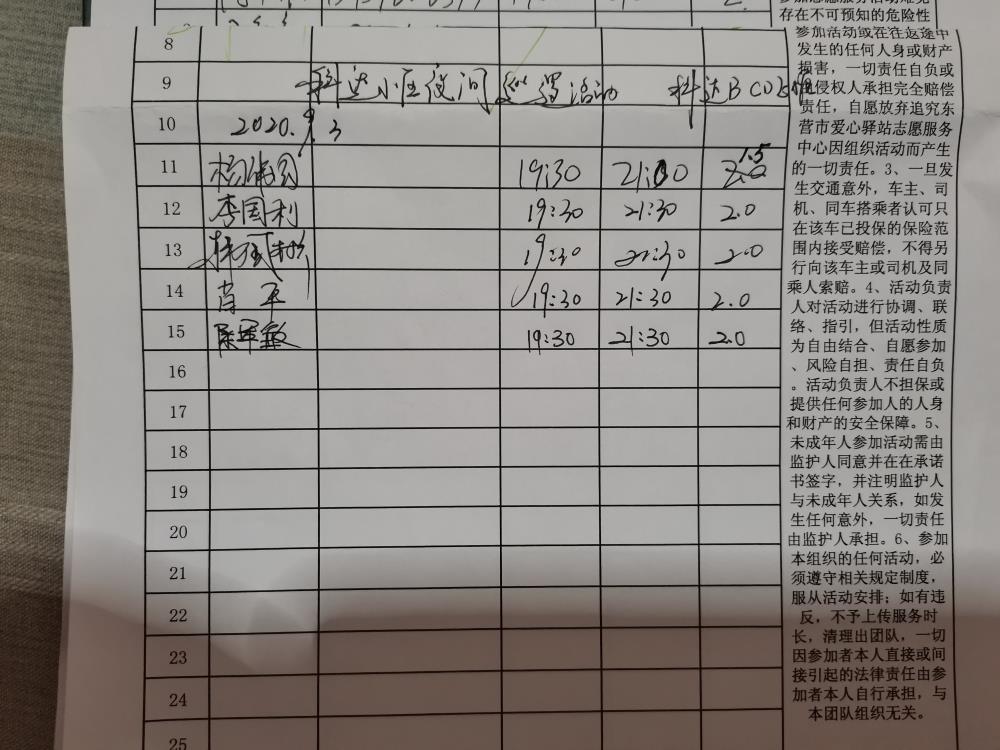 存在不可预知的危险性
8
9 科达小区夜间巡逻活动 科达BCD
10 2020.9.3
11 19:30 21:00 1.5
12 李国利 19:30 21:30 2.0
13 19:30 21:30 2.0
14 肖平 19:30 21:30 2.0
15 陈军敏 19:30 21:30 2.0
16
17
18
19
20
21
22
23
24
25
参加活动或在往返途中
发生的任何人身或财产
损害，一切责任自负或
侵权人承担完全赔偿
责任，自愿放弃追究东
营市爱心驿站志愿服务
中心因组织活动而产生
的一切责任。3、一旦发
生交通意外，车主、司
机、同车搭乘者认可只
在该车已投保的保险范
围内接受赔偿，不得另
行向该车主或司机及同
乘人索赔。4、活动负责
人对活动进行协调、联
络、指引，但活动性质
为自由结合、自愿参加
、风险自担、责任自负
。活动负责人不担保或
提供任何参加人的人身
和财产的安全保障。5、
未成年人参加活动需由
监护人同意并在在承诺
书签字，并注明监护人
与未成年人关系，如发
生任何意外，一切责任
由监护人承担。6、参加
本组织的任何活动，必
须遵守相关规定制度，
服从活动安排；如有违
反，不予上传服务时
长，清理出团队，一切
因参加者本人直接或间
接引起的法律责任由参
加者本人自行承担，与
本团队组织无关。